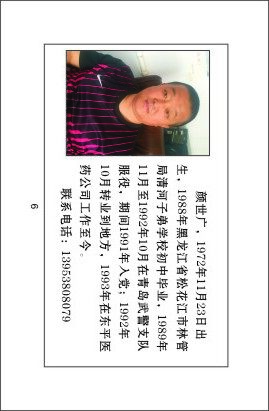 颜世广，1972年11月23日出
生，1988年黑龙江省松花江市林管
局清河子弟学校初中毕业，1989年
11月至1992年10月在青岛武警支队
服役，期间1991年入党；1992年
10月转业到地方，1993年在东平医
药公司工作至今。
联系电话：13953808079
6